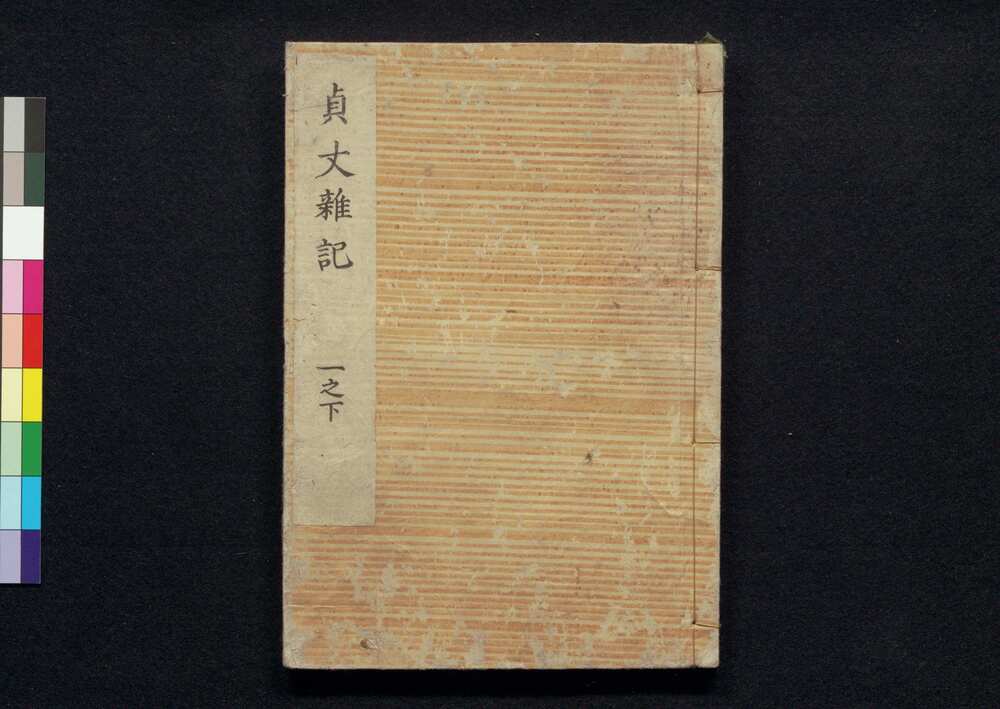 貞丈雜記 一之下